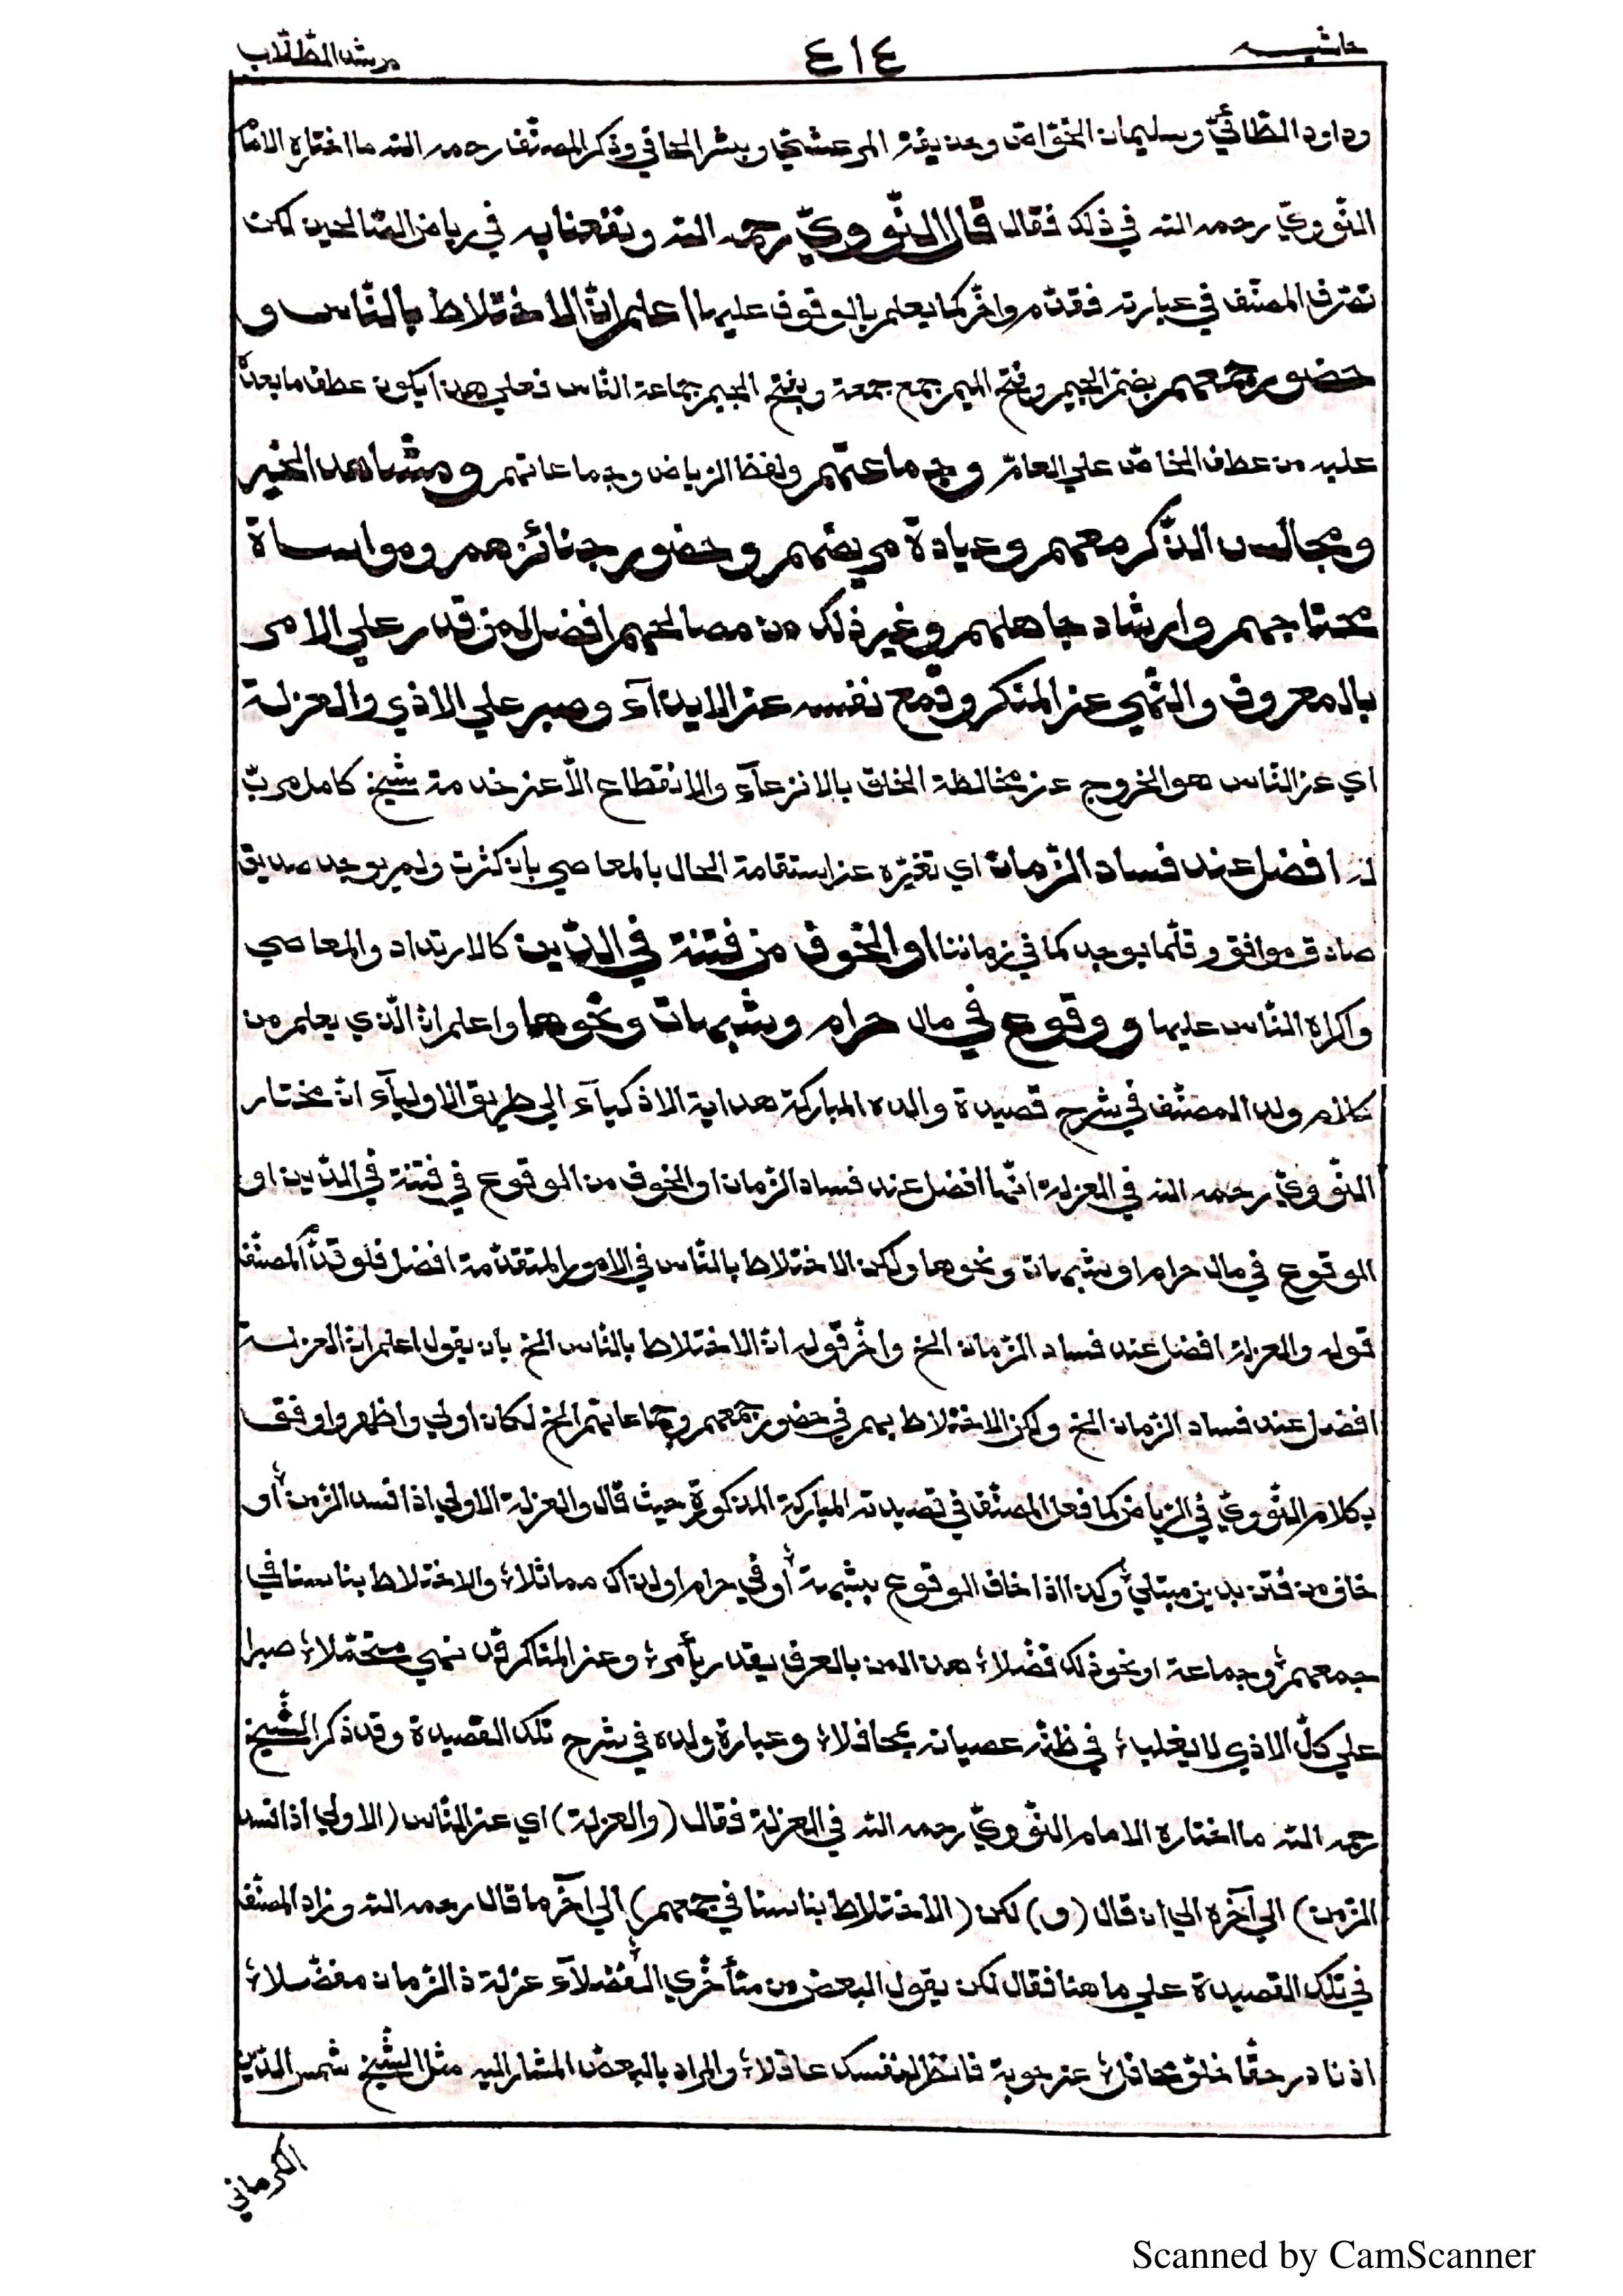 حاشية ٤١٤ مرشد الطّلّاب
وداود الطّائيّ وسليمان الخوّاص وحذيفة المرعشيّ وبشر الحافي وذكر المصنّف رحمه الله ما اختاره الامام
النّوويّ رحمه الله في ذلك فقال قال النّوويّ رحمه الله ونفعنا به في رياض الصّالحين لكن
تصرّف المصنّف في عبارته فقدّم واخّر كما يعلم بالوقوف عليها اعلم انّ الاختلاط بالنّاس و
حضور جمعهم بضمّ الجيم وفتح الميم جمع جمعة وبفتح الجيم جماعة النّاس فعلي هذا يكون عطف ما بعده
عليه من عطف الخاصّ علي العامّ وجماعتهم ولفظ الرياض وجماعاتهم ومشاهد الخير
ومجالس الذّكر معهم وعيادة مريضهم وحضور جنائزهم ومواساة
محتاجهم وارشاد جاهلهم وغير ذلك من مصالحهم افضل لمن قدر علي الامر
بالمعروف والنّهي عن المنكر وقمع نفسه عن الايذآء وصبر علي الاذي والعزلة
اي عن النّاس هو الخروج عن مخالطة الخلق بالانزعآء والانقطاع الّا عن خدمة شيخ كامل مربّ
له افضل عند فساد الزّمان اي تغيّره عن استقامة الحال بالمعاصي بان كثرت ولم يوجد صديق
صادق موافق وقلّما يوجد كما في زماننا او الخوف من فتنة في الدّين كالارتداد والمعاصي
واكراه النّاس عليها ووقوع في مال حرام وشبهات ونحوها واعلم انّ الّذي يعلم من
كلام ولد المصنّف في شرح قصيدة والده المباركة هداية الاذكيآء الي طريق الاوليآء انّ مختار
النّوويّ رحمه الله في العزلة انّها افضل عند فساد الزّمان او الخوف من الوقوع في فتنة في الدّين او
الوقوع في مال حرام او شبهات ونحوها ولكن الاختلاط بالنّاس في الامور المتقدّمة افضل فلو قدّم المصنّف
قوله والعزلة افضل عند فساد الزّمان الخ واخّر قوله انّ الاختلاط بالنّاس الخ بان يقول اعلم انّ العزلة
افضل عند فساد الزّمان الخ ولكن الاختلاط بهم في حضور جمعهم وجماعاتهم الخ لكان اولي واظهر واوفق
بكلام النّوويّ في الرّياض كما فعل المصنّف في قصيدته المباركة المذكورة حيث قال والعزلة الاولي اذا فسد الزّمن أو
خاف من فتن بدين مبتلي وكذا اذا خاف الوقوع بشبهة أو في حرام او لذاك مماثلا والاختلاط بناسنا في
جمعهم وجماعة او نحو ذلك فضّلا هذا لمن بالعرف يقدر يأمر وعن المناكر قد نهي متحمّلا صبرا
علي كلّ الاذي لا يغلب في ظنّه عصيانه بمحافلا وعبارة ولده في شرح تلك القصيدة وقد ذكر الشّيخ
رحمه الله ما اختاره الامام النّوويّ رحمه الله في العزلة فقال (والعزلة) اي عن النّاس (الاولي اذا فسد
الزّمن) الي آخره الي ان قال (و) لكن (الاختلاط بناسنا في جمعهم) الي آخر ما قال رحمه الله وزاد المصنّف
في تلك القصيدة علي ما هنا فقال لكن يقول البعض من متأخّري الفضلآء عزلة ذا الزّمان مفضّلا
اذ نادر حقّا خلوّ محافل عن حوبة فانظر لنفسك عاقلا والمراد بالبعض المشار اليه مثل الشّيخ شمس الدّين
الكرماني
Scanned by CamScanner